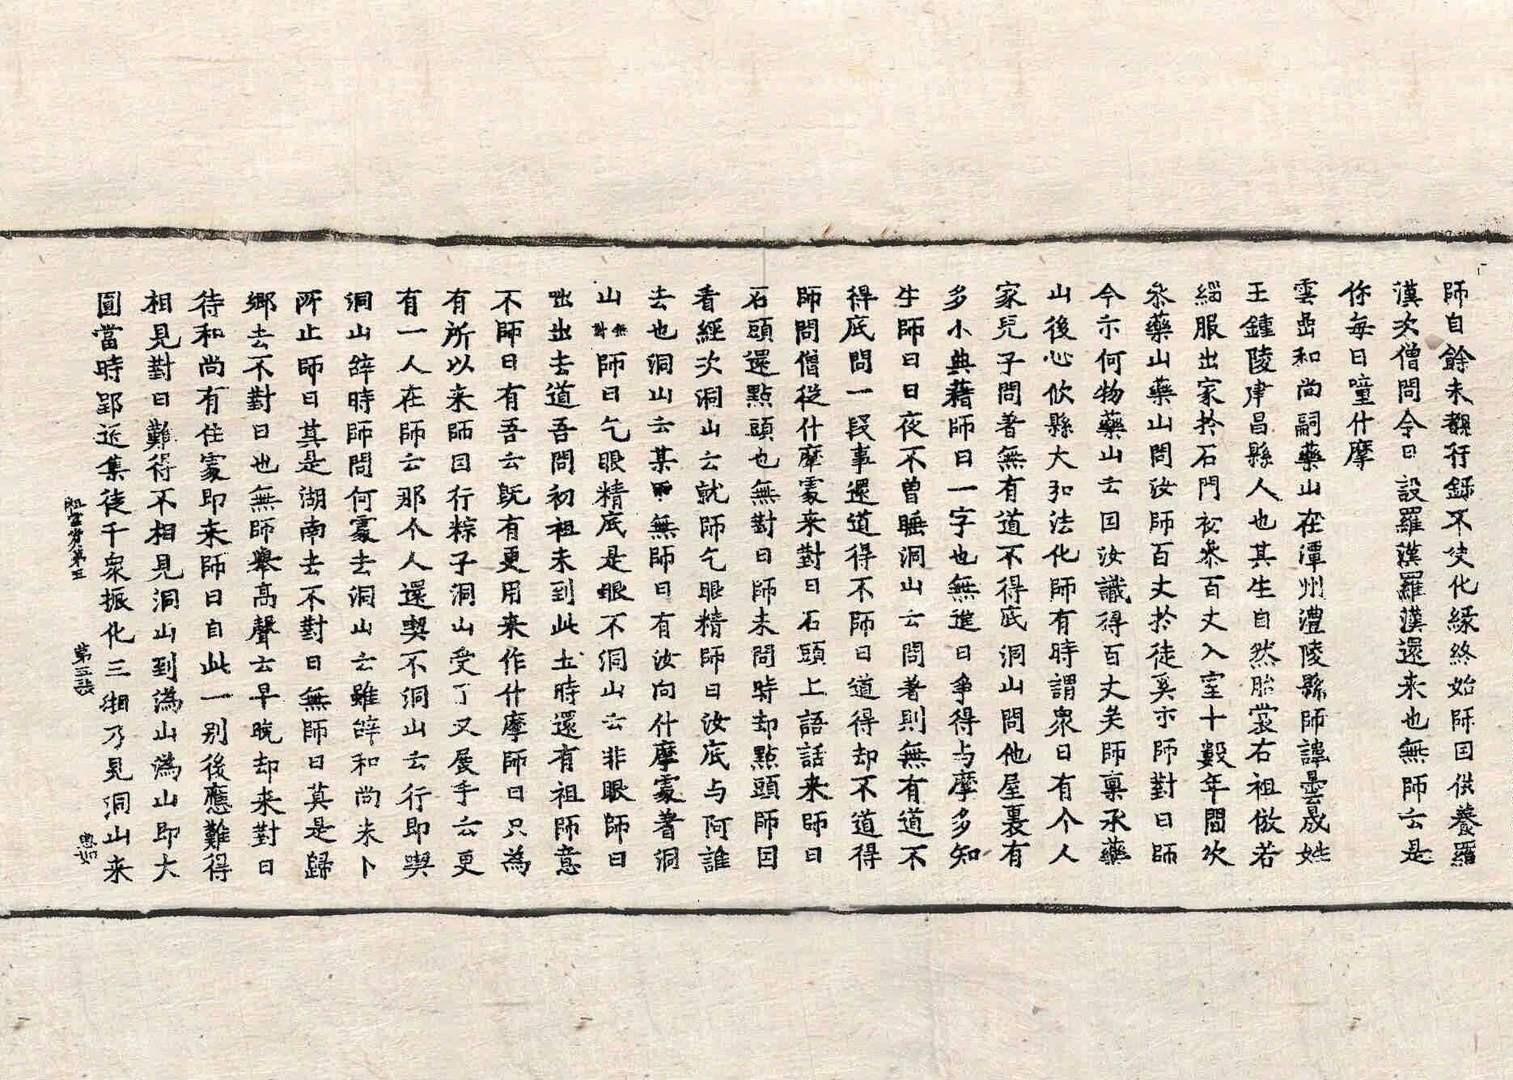 師自餘未覩行録不決化緣終始師因供養羅
漢次僧問今日設羅漢羅漢還来也無師云是
你每日噇什摩
雲嵒和尚嗣藥山在潭州澧陵縣師諱曇晟姓
王鍾陵建昌縣人也其生自然胎裳右袒倣若
緇服出家扵石門初叅百丈入室十數年間次
叅藥山藥山問汝師百丈扵徒奚示師對曰師
今示何物藥山云因汝識得百丈矣師稟承藥
山後心攸縣大弘法化師有時謂衆曰有个人
家兒子問著無有道不得底洞山問他屋裏有
多小典藉師曰一字也無進曰爭得与摩多知
生師曰日夜不曽睡洞山云問著則無有道不
得底問一段事還道得不師曰道得却不道得
師問僧從什摩處来對曰石頭上語話来師曰
石頭還點頭也無對曰師未問時却點頭師因
看經次洞山云就師乞眼精師曰汝底与阿誰
去也洞山云某甲無師曰有汝向什摩處著洞
山無對師曰乞眼精底是眼不洞山云非眼師曰
咄出去道吾問初祖未到此土時還有祖師意
不師曰有吾云旣有更用来作什摩師曰只為
有所以来師因行粽子洞山受了又展手云更
有一人在師云那个人還喫不洞山云行即喫
洞山辞時師問何處去洞山云雖辞和尚未卜
所止師曰莫是湖南去不對曰無師曰莫是歸
鄉去不對曰也無師舉高聲云早晚却来對曰
待和尚有住處即来師曰自此一別後應難得
相見對曰難得不相見洞山到溈山溈山即大
圓當時郢迊集徒千衆振化三湘乃見洞山来
祖堂第五 第三張